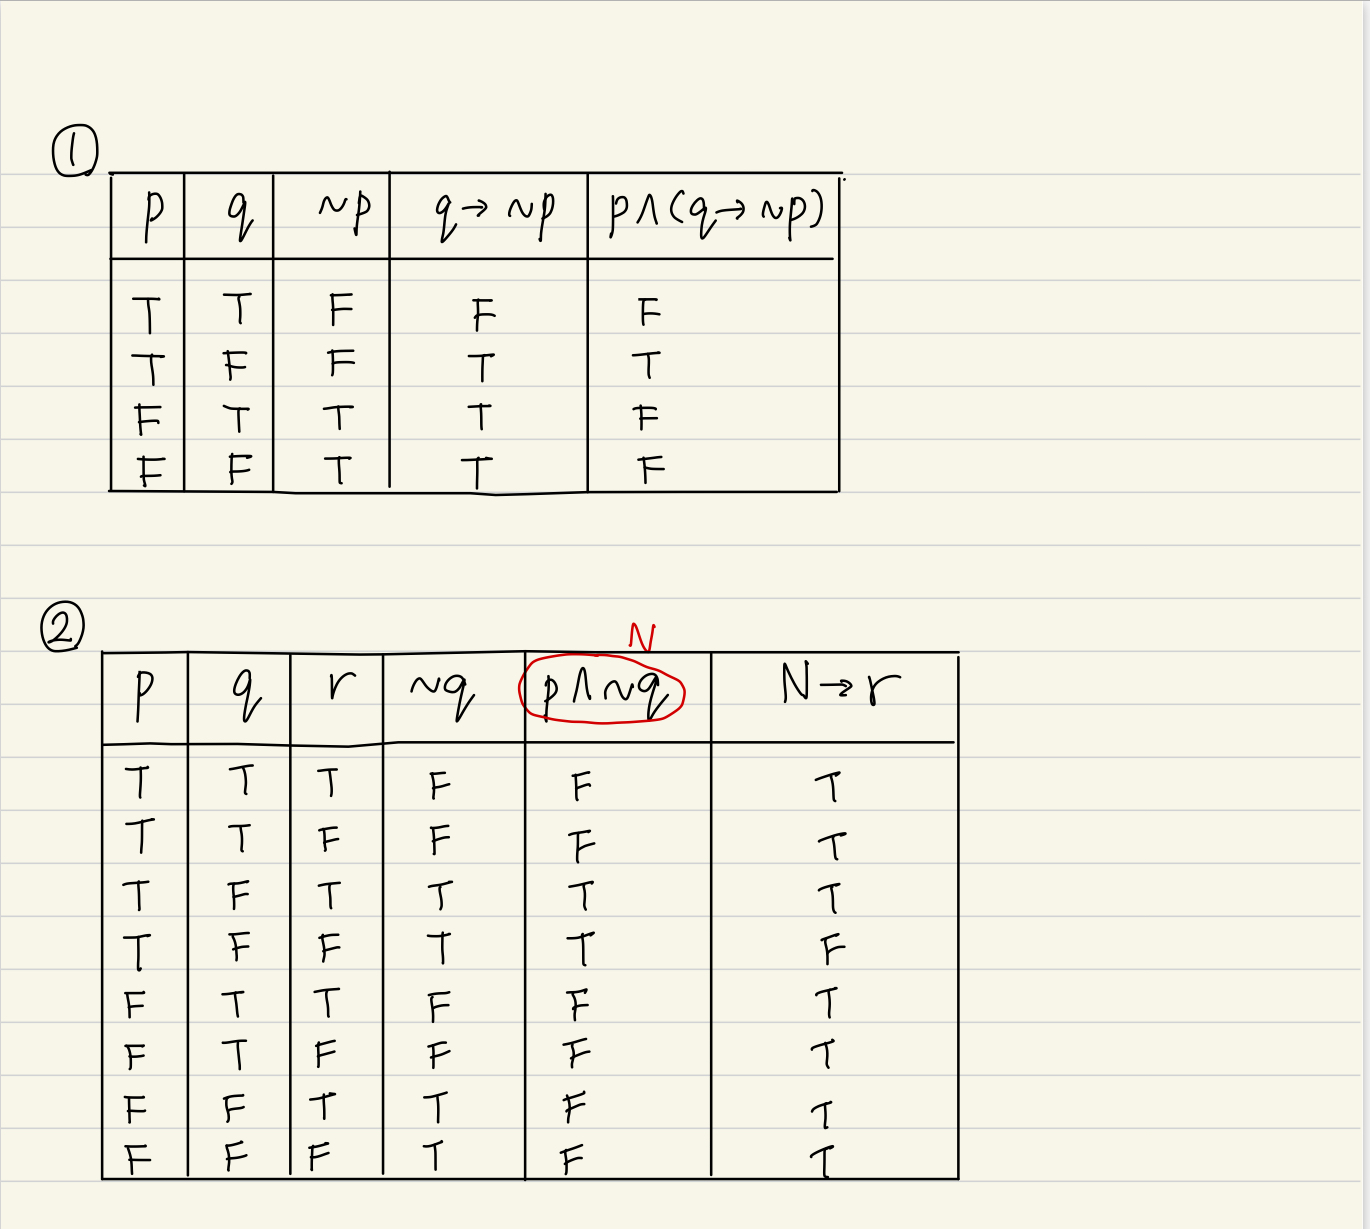 ①
p q ~p q → ~p p∧(q → ~p)
T T F F F
T F F T T
F T T T F
F F T T F
②
N
p q r ~q p∧~q N → r
T T T F F T
T T F F F T
T F T T T T
T F F T T F
F T T F F T
F T F F F T
F F T T F T
F F F T F T